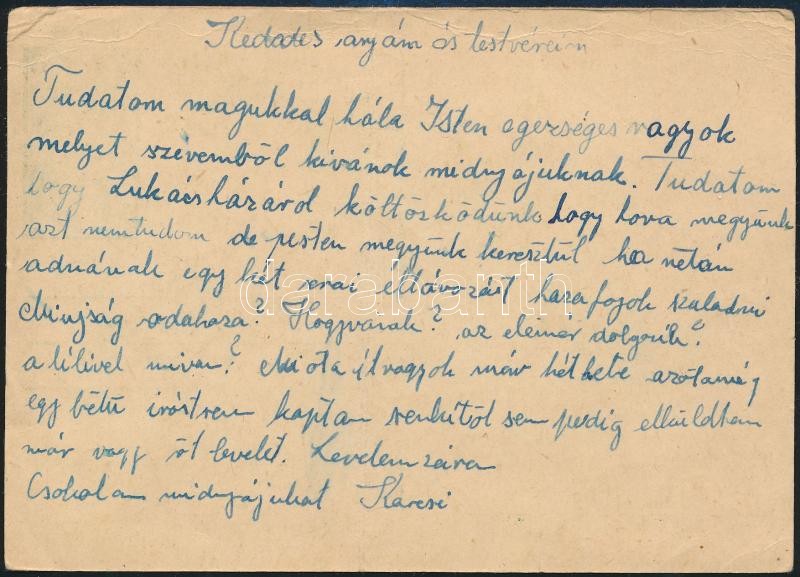 Kedves anyám és testvéreim
Tudatom magukkal hála Isten egerséges vagyok
melyet szivemböl kivánok midnyájuknak. Tudatom
hogy Lukácsházárol költösködünk hogy hova megyünk
azt nemtudom de pesten megyünk keresztül ha netán
adnának egy két orai éltávozást hazafogok szaladni
Mi ujság odahaza? Hogyvanak? az elemér dolgozik?
a lilivel mivan? Mi óta itvagyok már hét hete azótamég
egy bétü irást sem kaptam senkitöl sem pedig elküldtem
már vagy öt levelet. Levelem zárva
Csokolom midnyájukat Karcsi
darabanth.com